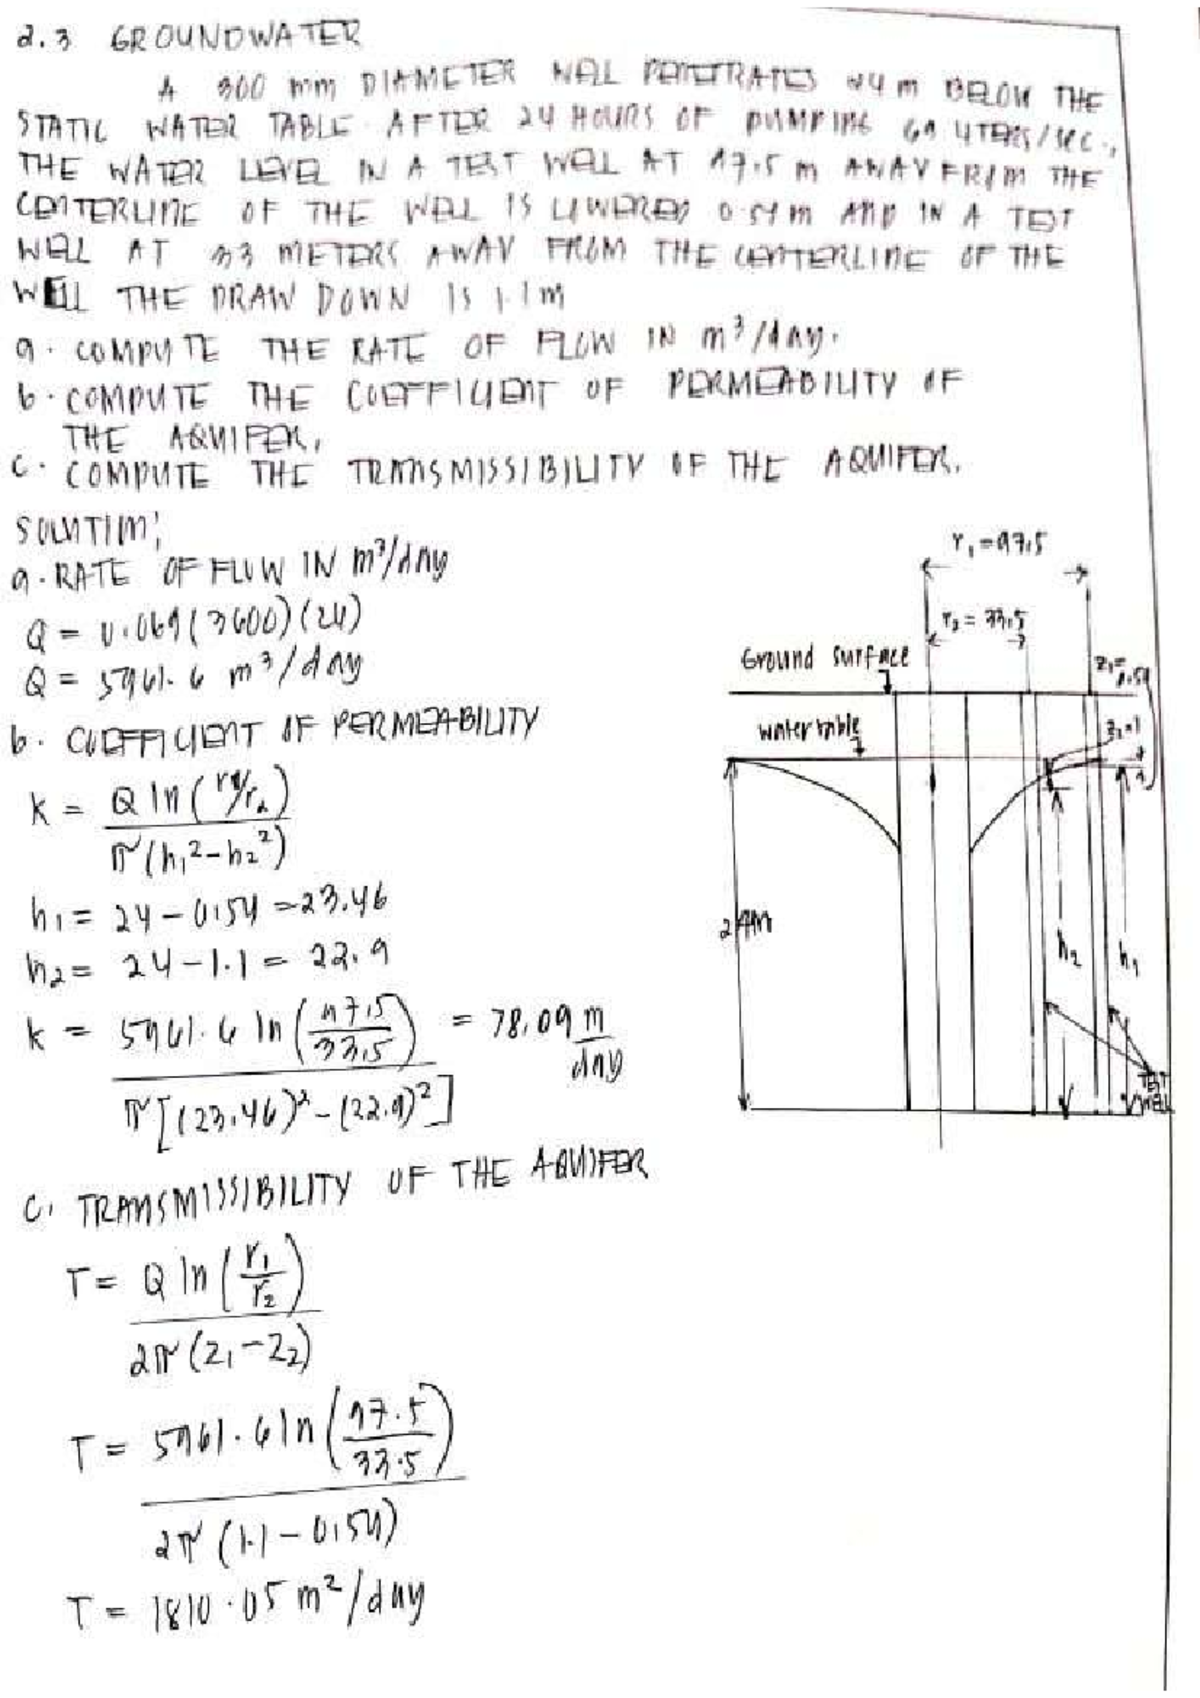 2.3 GROUNDWATER
A 300 mm DIAMETER WELL PENETRATES 24 m BELOW THE
STATIC WATER TABLE. AFTER 24 HOURS OF PUMPING 69 LITERS/SEC.,
THE WATER LEVEL IN A TEST WELL AT 97.5 m AWAY FROM THE
CENTERLINE OF THE WELL IS LOWERED 0.54 m AND IN A TEST
WELL AT 33 METERS AWAY FROM THE CENTERLINE OF THE
WELL THE DRAW DOWN IS 1.1 m
a. COMPUTE THE RATE OF FLOW IN m³/day.
b. COMPUTE THE COEFFICIENT OF PERMEABILITY OF
THE AQUIFER.
c. COMPUTE THE TRANSMISSIBILITY OF THE AQUIFER.
SOLUTION:
a. RATE OF FLOW IN m³/day
Q = 0.069(3600)(24)
Q = 5961.6 m³/day
b. COEFFICIENT OF PERMEABILITY
k = Q ln (r₁/r₂)
π (h₁² - h₂²)
h₁ = 24 - 0.54 = 23.46
h₂ = 24 - 1.1 = 22.9
k = 5961.6 ln (97.5/33.5) = 78.09 m/day
π [(23.46)² - (22.9)²]
c. TRANSMISSIBILITY OF THE AQUIFER
T = Q ln (r₁/r₂)
2π (z₁ - z₂)
T = 5961.6 ln (97.5/33.5)
2π (1.1 - 0.54)
T = 1810.05 m²/day
r₁ = 97.5
r₂ = 33.5
Ground surface
z₁=
0.54
water table
z₂=1.1
24m
h₂
h₁
TEST
WELL